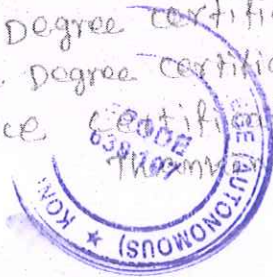 Degree certifi
Degree certific
ce certifi
CODE
638 107
KON
GE (AUTONOMOUS) ★